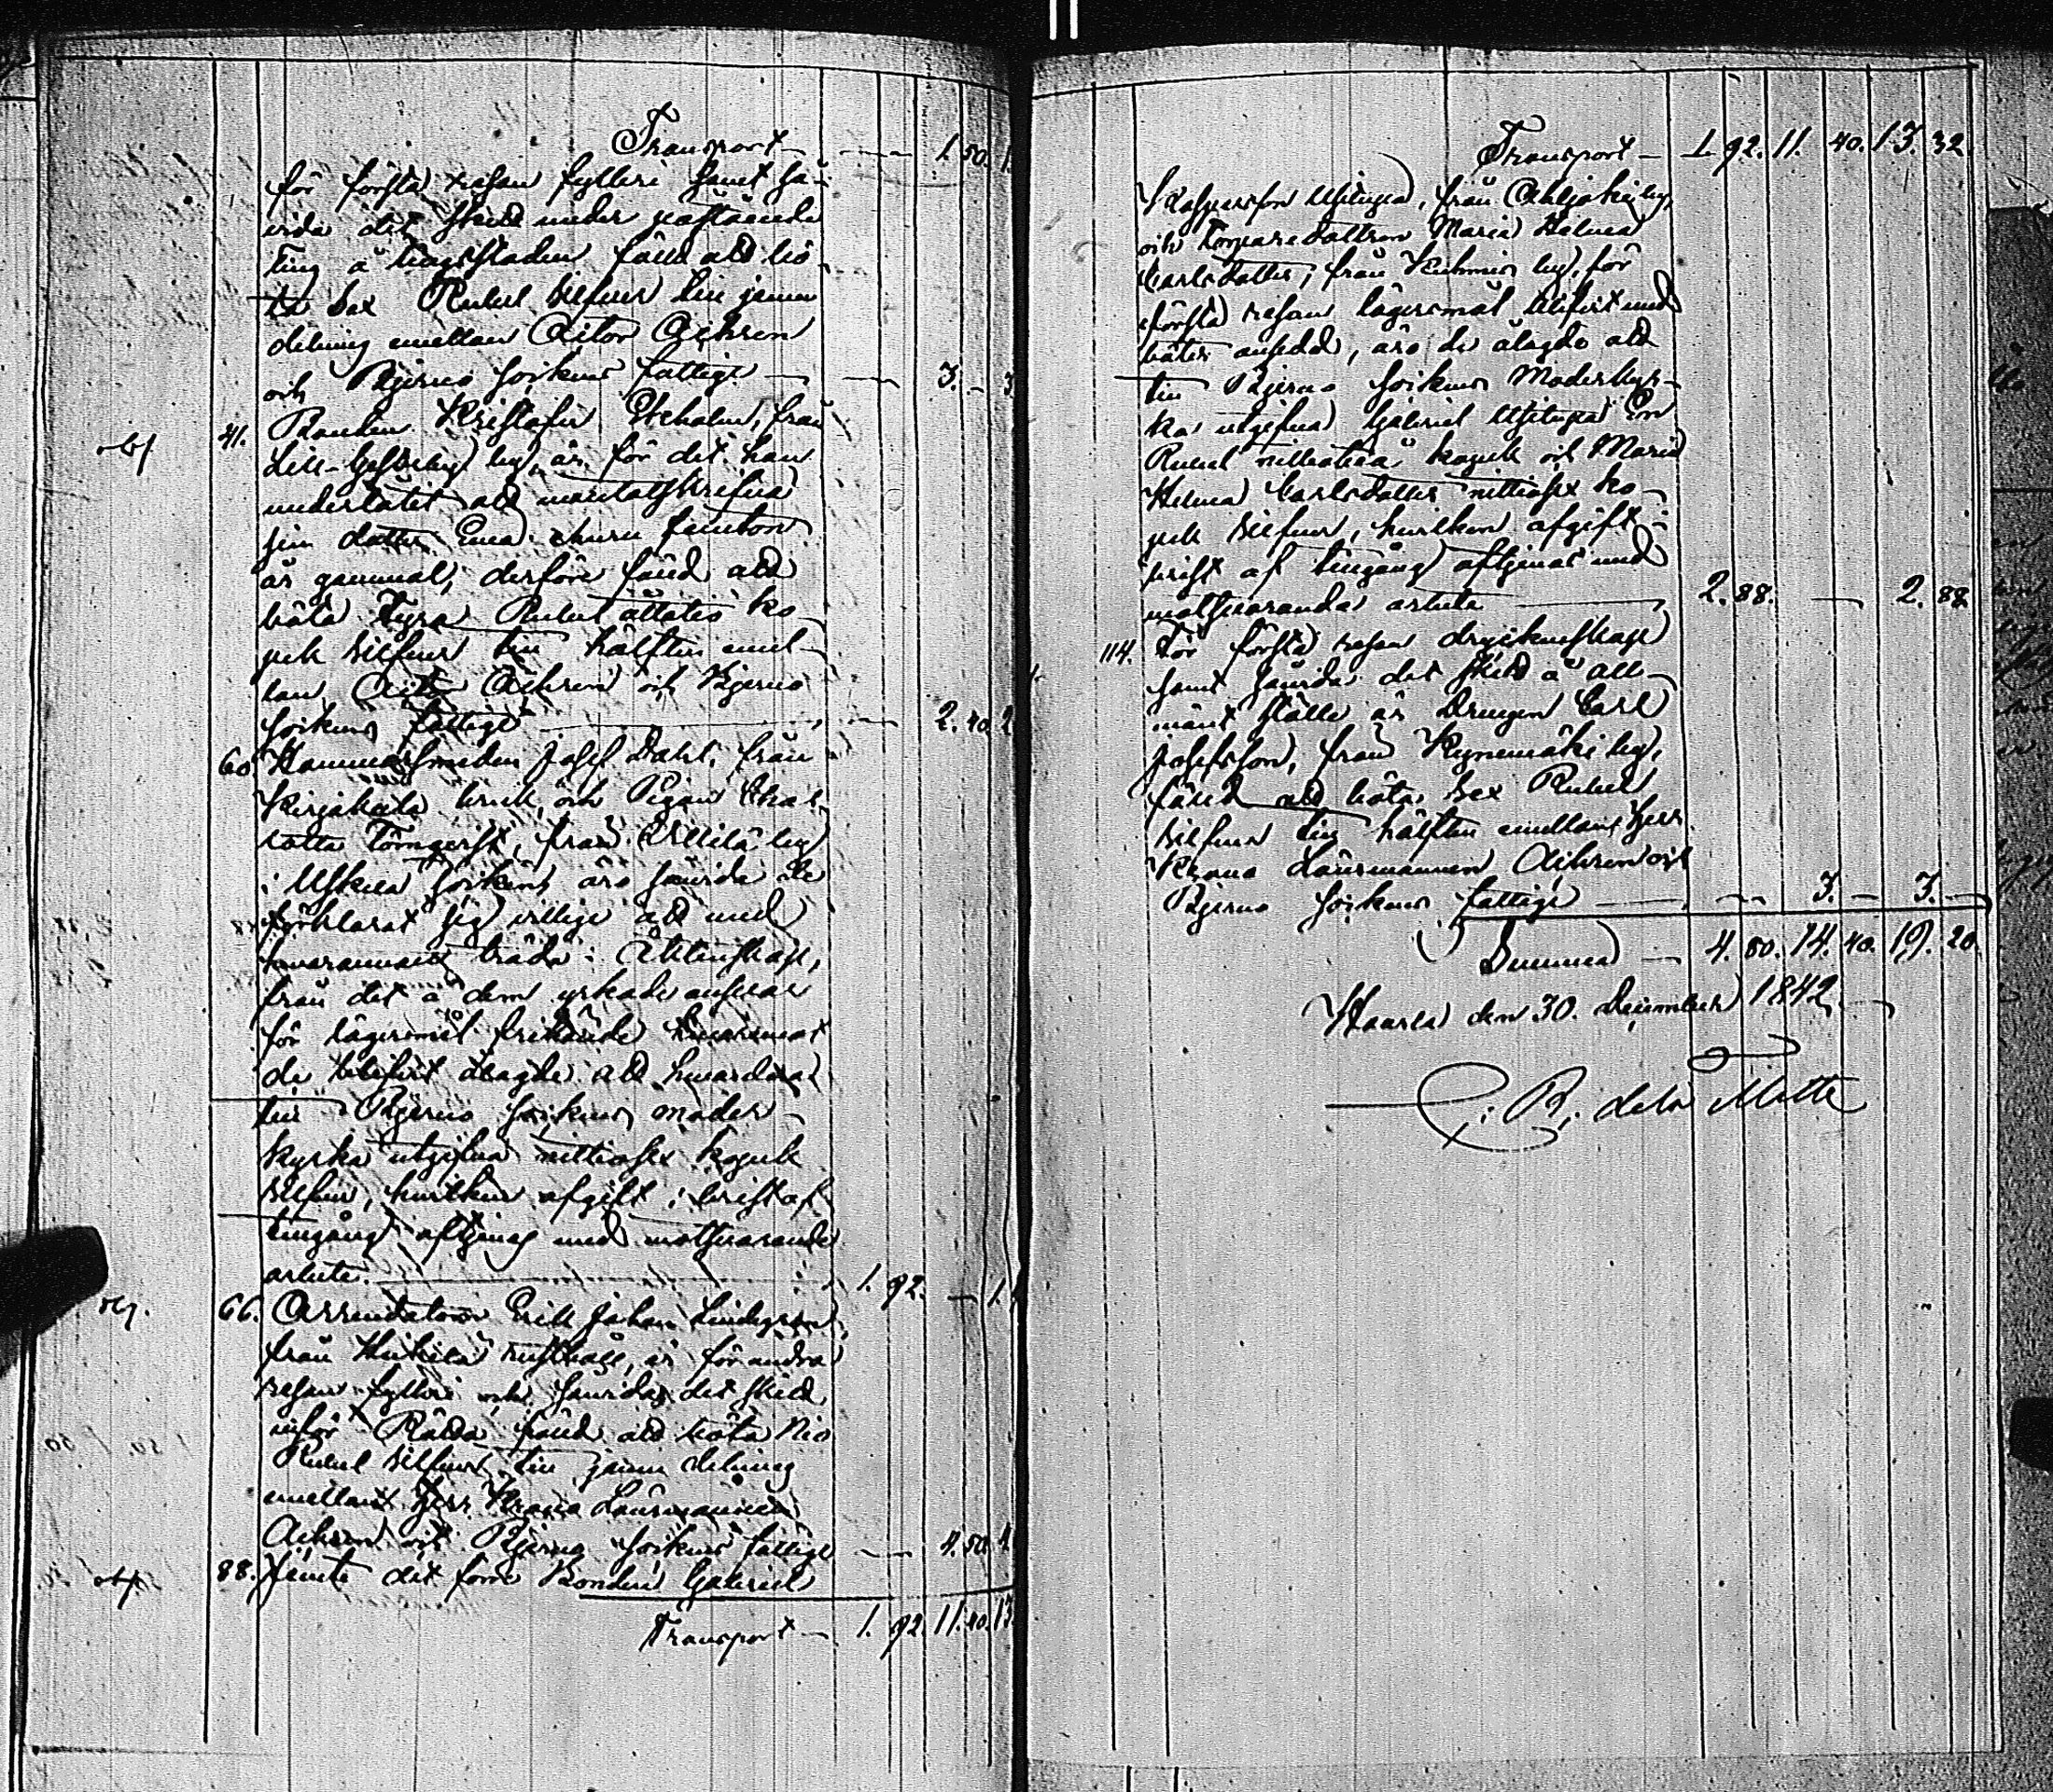 Transport — 1. 50. 1.
för första resan fylleri samt så-
vida det skedd under påstående
Ting å tingsstaden fäld att bö-
ta Sex Rubel Silfver till jemn
delning emellan Actor Aihren
och Bjerno Sockens fattige — 3. — 3
41. Bonden Kristofer Ekeholm, från
Lill- by, är för det han
underlåtit att mantalsskrifva
sin dotter Eva, hvru femton
år gammal, derföre fäld att
böta Fyra Rubel åttatio ko-
pek Silfver till hälften emel-
lan Actor Aihren och Bjerno
Sockens fattige — 2. 40. 2
60. Hammarsmeden Josef Dahl, från
Kirjakkala bruk, och Pigan Char-
lotta Törnqvist, från by
i Uskela Socken, äro såvida de
förklarat sig villige att med
hvarannan träda i Äktenskap,
från det å dem yrkade ansvar
för lägersmål frikände hvaremot
de blifvit ålagde att hvardera
till Bjerno Sockens moder-
kyrka utgifva nittiosex kopek
Silfver, hvilken afgift i brist af
tillgång aftjenas med motsvarande
arbete. — 1. 92. — 1.
66. Arrendatorn Erik Johan Lindegren,
från rusthåll, är för andra
resan fylleri och såvida det skedd
inför Rätta fäld att böta Nio
Rubel Silfver till jemn delning
emellan Herr Krono Länsmannen
Aihren och Bjerno Sockens fattige — 4. 50. 4
88. Jemte det förre Bonden Gabriel
Transport — 1. 92. 11. 40. 13.
Transport — 1. 92. 11. 40. 13. 32.
från by,
och Torparedottren Maria Helena
Carlsdotter, från by, för
första resan lägersmål blifvit med
böter ansedd, äro de ålagde att
till Bjerno Sockens Moderkyr-
ka utgifva Gabriel En
Rubel nittiotvå kopek och Maria
Helena Carlsdotter nittiosex ko-
pek Silfver, hvilken afgift i
brist af tillgång aftjenas med
motsvarande arbete — 2. 88. — 2. 88.
114. För första resan dryckenskap
samt såvida det skedd å all-
mänt ställe är Drengen Carl
Josefsson, från by,
fäld att böta Sex Rubel
Silfver till hälften emellan Herr
Krono Länsmannen Aihren och
Bjerno Sockens fattige — 3. — 3. —
Summa — 4. 80. 14. 40. 19. 20.
den 30. December 1842.
de la Motte